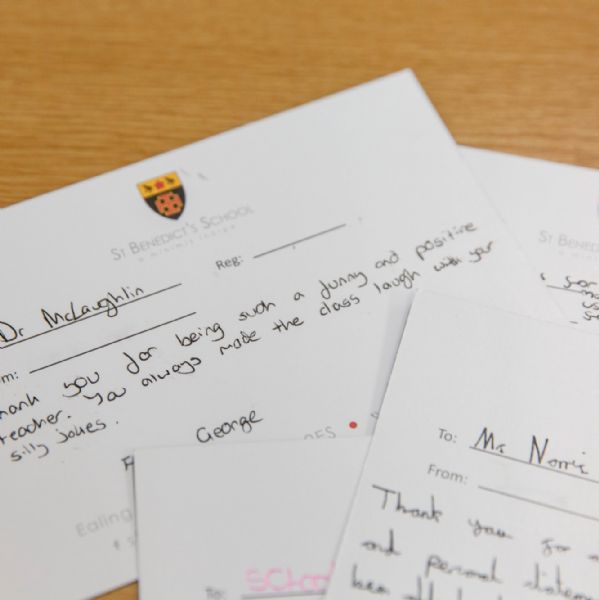 ST BENEDICT'S SCHOOL
a minimis incipe
Reg:
Dr McLaughlin
m:
hank you for being such a funny and positive
teacher. You always made the class laugh with your
silly jokes.
F
George
Ealing
ST BENED
To: Mr Norris
From:
Thank you for
and personal statem
To: SCHOO